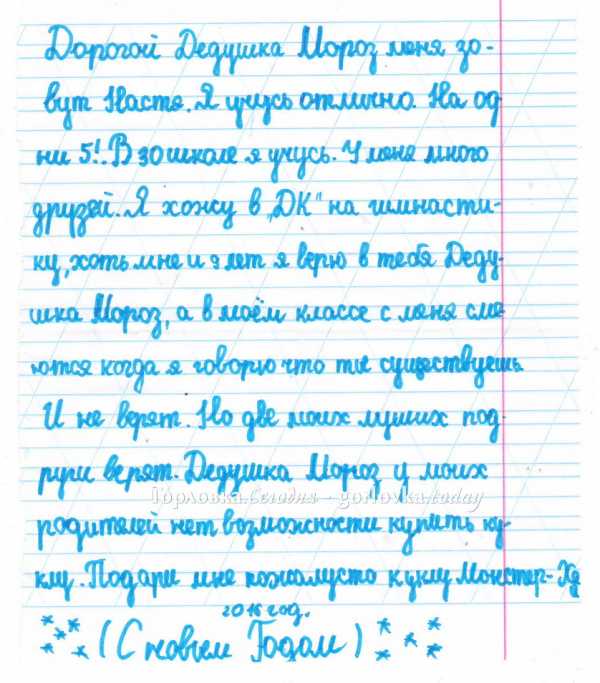 Дорогой Дедушка Мороз меня зо-
вут Настя. Я учусь отлично. На од
ни 5!. В 30 школе я учусь. У меня много
друзей. Я хожу в „ДК" на гимнасти-
ку, хоть мне и 9 лет я верю в тебя Деду-
шка Мороз, а в моём классе с меня сме
ются когда я говорю что ты существуешь.
И не верят. Но две моих лучших под
руги верят. Дедушка Мороз у моих
Горловка.Сегодня - gorlovka.today
родителей нет возможности купить ку-
клу. Подари мне пожалусто куклу Монстер-Хй
2016 год.
(С новым Годом)